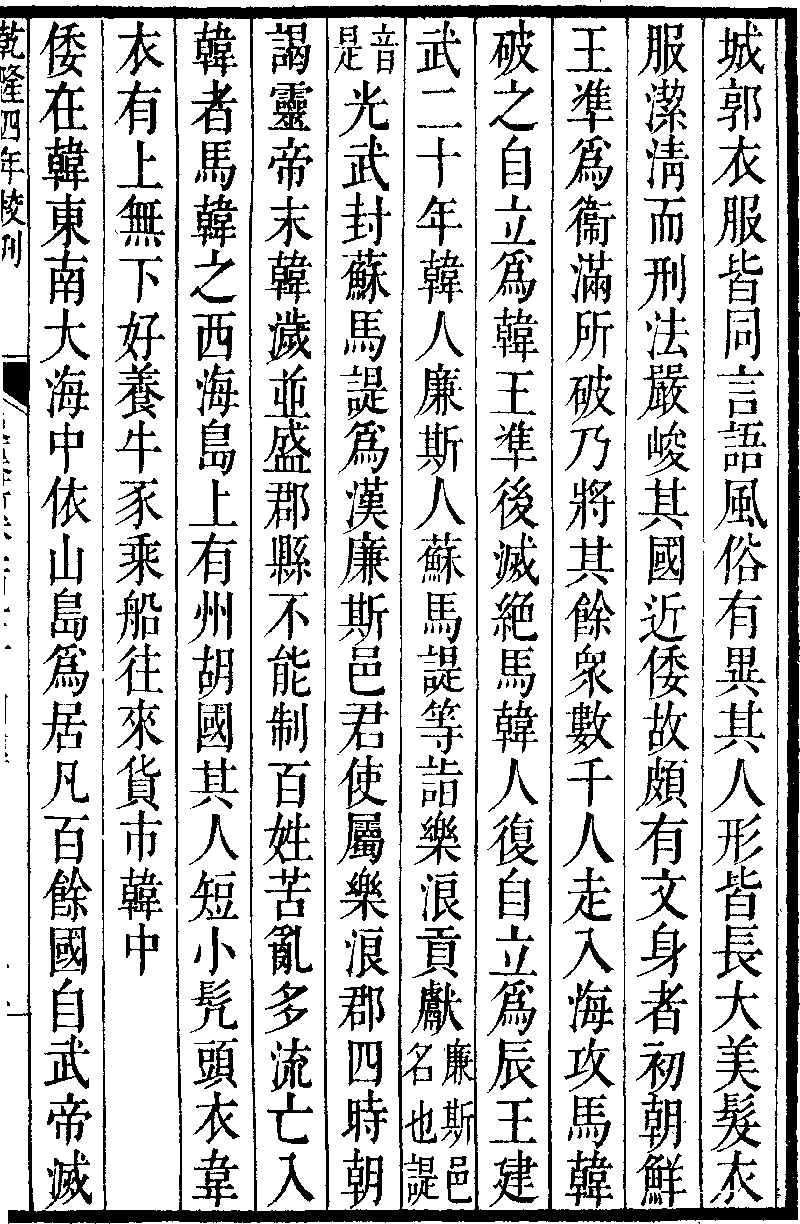 城郭衣服皆同言語風俗有異其人形皆長大美髮衣
服潔清而刑法嚴峻其國近倭故頗有文身者初朝鮮
王準爲衞滿所破乃將其餘衆數千人走入海攻馬韓
破之自立爲韓王準後滅絕馬韓人復自立爲辰王建
武二十年韓人廉斯人蘇馬諟等詣樂浪貢獻廉斯邑名也諟
音是光武封蘇馬諟爲漢廉斯邑君使屬樂浪郡四時朝
謁靈帝末韓濊並盛郡縣不能制百姓苦亂多流亡入
韓者馬韓之西海島上有州胡國其人短小髠頭衣韋
衣有上無下好養牛豕乘船往來貨市韓中
倭在韓東南大海中依山島爲居凡百餘國自武帝滅
乾隆四年校刊